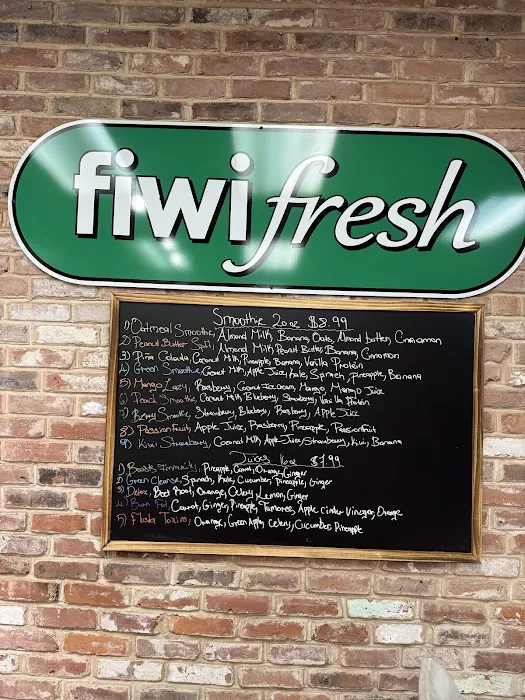 fiwi fresh
Smoothie 20oz $8.99
1) Oatmeal Smoothie, Almond Milk, Banana, Oats, Almond butter, Cinnamon
2) Peanut Butter Split, Almond Milk, Peanut Butter, Banana, Cinnamon
3) Piña Colada, Coconut Milk, Pineapple, Banana, Vanilla Protein
4) Green Smoothie, Coconut Milk, Apple Juice, Kale, Spinach, Pineapple, Banana
5) Mango Lazy, Raspberry, Coconut Ice cream, Mango, Mango Juice
6) Peach Smoothie, Coconut Milk, Blueberry, Strawberry, Vanilla Protein
7) Berry Smoothie, Strawberry, Blueberry, Raspberry, Apple Juice
8) Passion Fruit, Apple Juice, Raspberry, Pineapple, Passionfruit
9) Kiwi Strawberry, Coconut Milk, Apple Juice, Strawberry, Kiwi, Banana
Juices 16oz $7.99
1) Boost Immunity, Pineapple, Carrot, Orange, Ginger
2) Green Cleanse, Spinach, Kale, Cucumber, Pineapple, Ginger
3) Detox, Beet Root, Orange, Celery, Lemon, Ginger
4) Burn Fat, Carrot, Ginger, Pineapple, Turmeric, Apple Cinder Vinegar, Orange
5) Flush Toxins, Orange, Green Apple, Celery, Cucumber, Pineapple